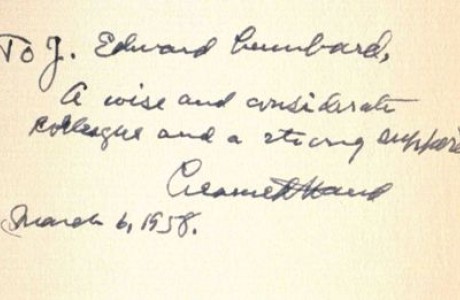 To J. Edward Lumbard,
A wise and considerate
colleague and a strong support
Learned Hand
March 6, 1958.